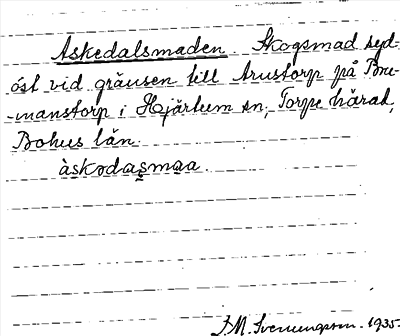 Askedalsmaden. Skogsmad syd-
öst vid gränsen till Arustorp på Bre-
-manstorp i Hjärtum sn, Torpe härad,
Bohus län.
àskodasmaa.
S.M. Svenungsson. 1935.